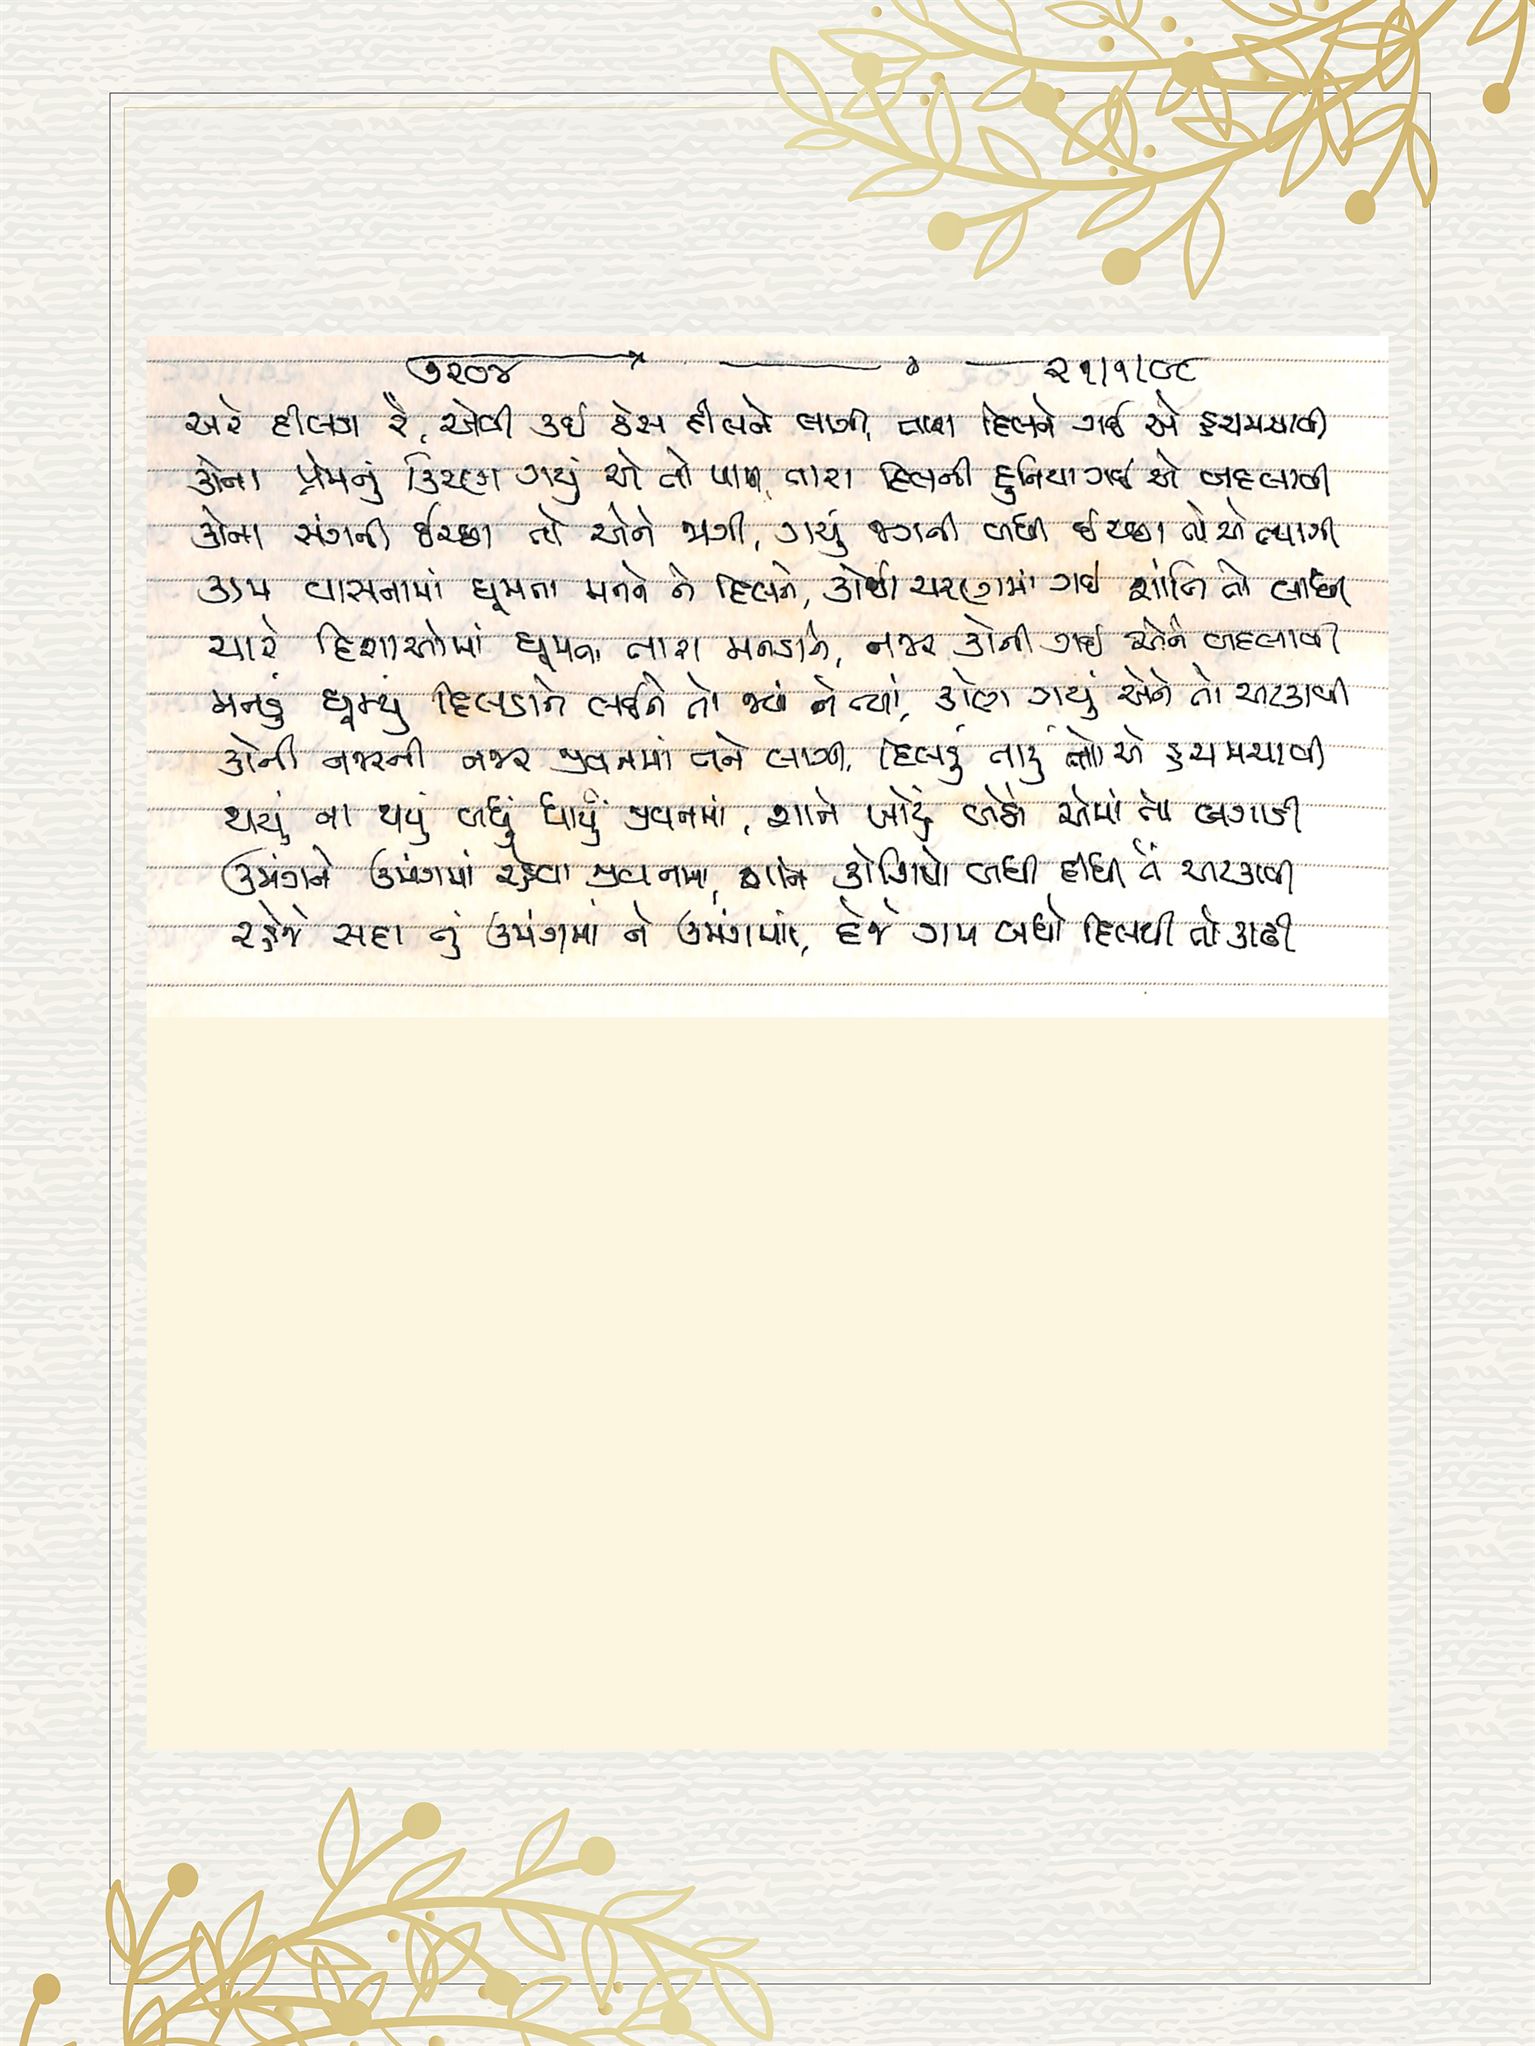 ૭૨૦૪ ૨૧/૧/૯૮
અરે દીલડા રે, એવી કઈ ઠેસ દીલને લાગી, તારા દિલને ગઈ એ હચમચાવી
કોના પ્રેમનું કિરણ ગયું એ તો પામી, તારા દિલની દુનિયા ગઈ એ બદલાવી
કોના સંગની ઈચ્છા તો એને જાગી, ગયું જગની બધી ઈચ્છા તો એ ત્યાગી
કામ વાસનામાં ઘૂમતા મનને ને દિલને, કોના ચરણમાં ગઈ શાંતિ તો લાધી
ચારે દિશાઓમાં ઘૂમતા તારા મનડાને, નજર કોની ગઈ એને બદલાવી
મનડું ઘૂમ્યું દિલડાને લઈને તો જ્યાં ને ત્યાં, કોણ ગયું એને તો અટકાવી
કોની નજરની નજર જીવનમાં તને લાગી, દિલડું તારું તો એ હચમચાવી
થયું ના થયું બધું ધાર્યું જીવનમાં, શાને ખોટું બેઠો એમાં તો લગાડી
ઉમંગને ઉમંગમાં રહેવા જીવનમાં, શાને કોશિશો બધી દીધી તેં અટકાવી
રહેજે સદા તું ઉમંગમાં ને ઉમંગમાં, દેજે ગમ બધો દિલથી તો કાઢી